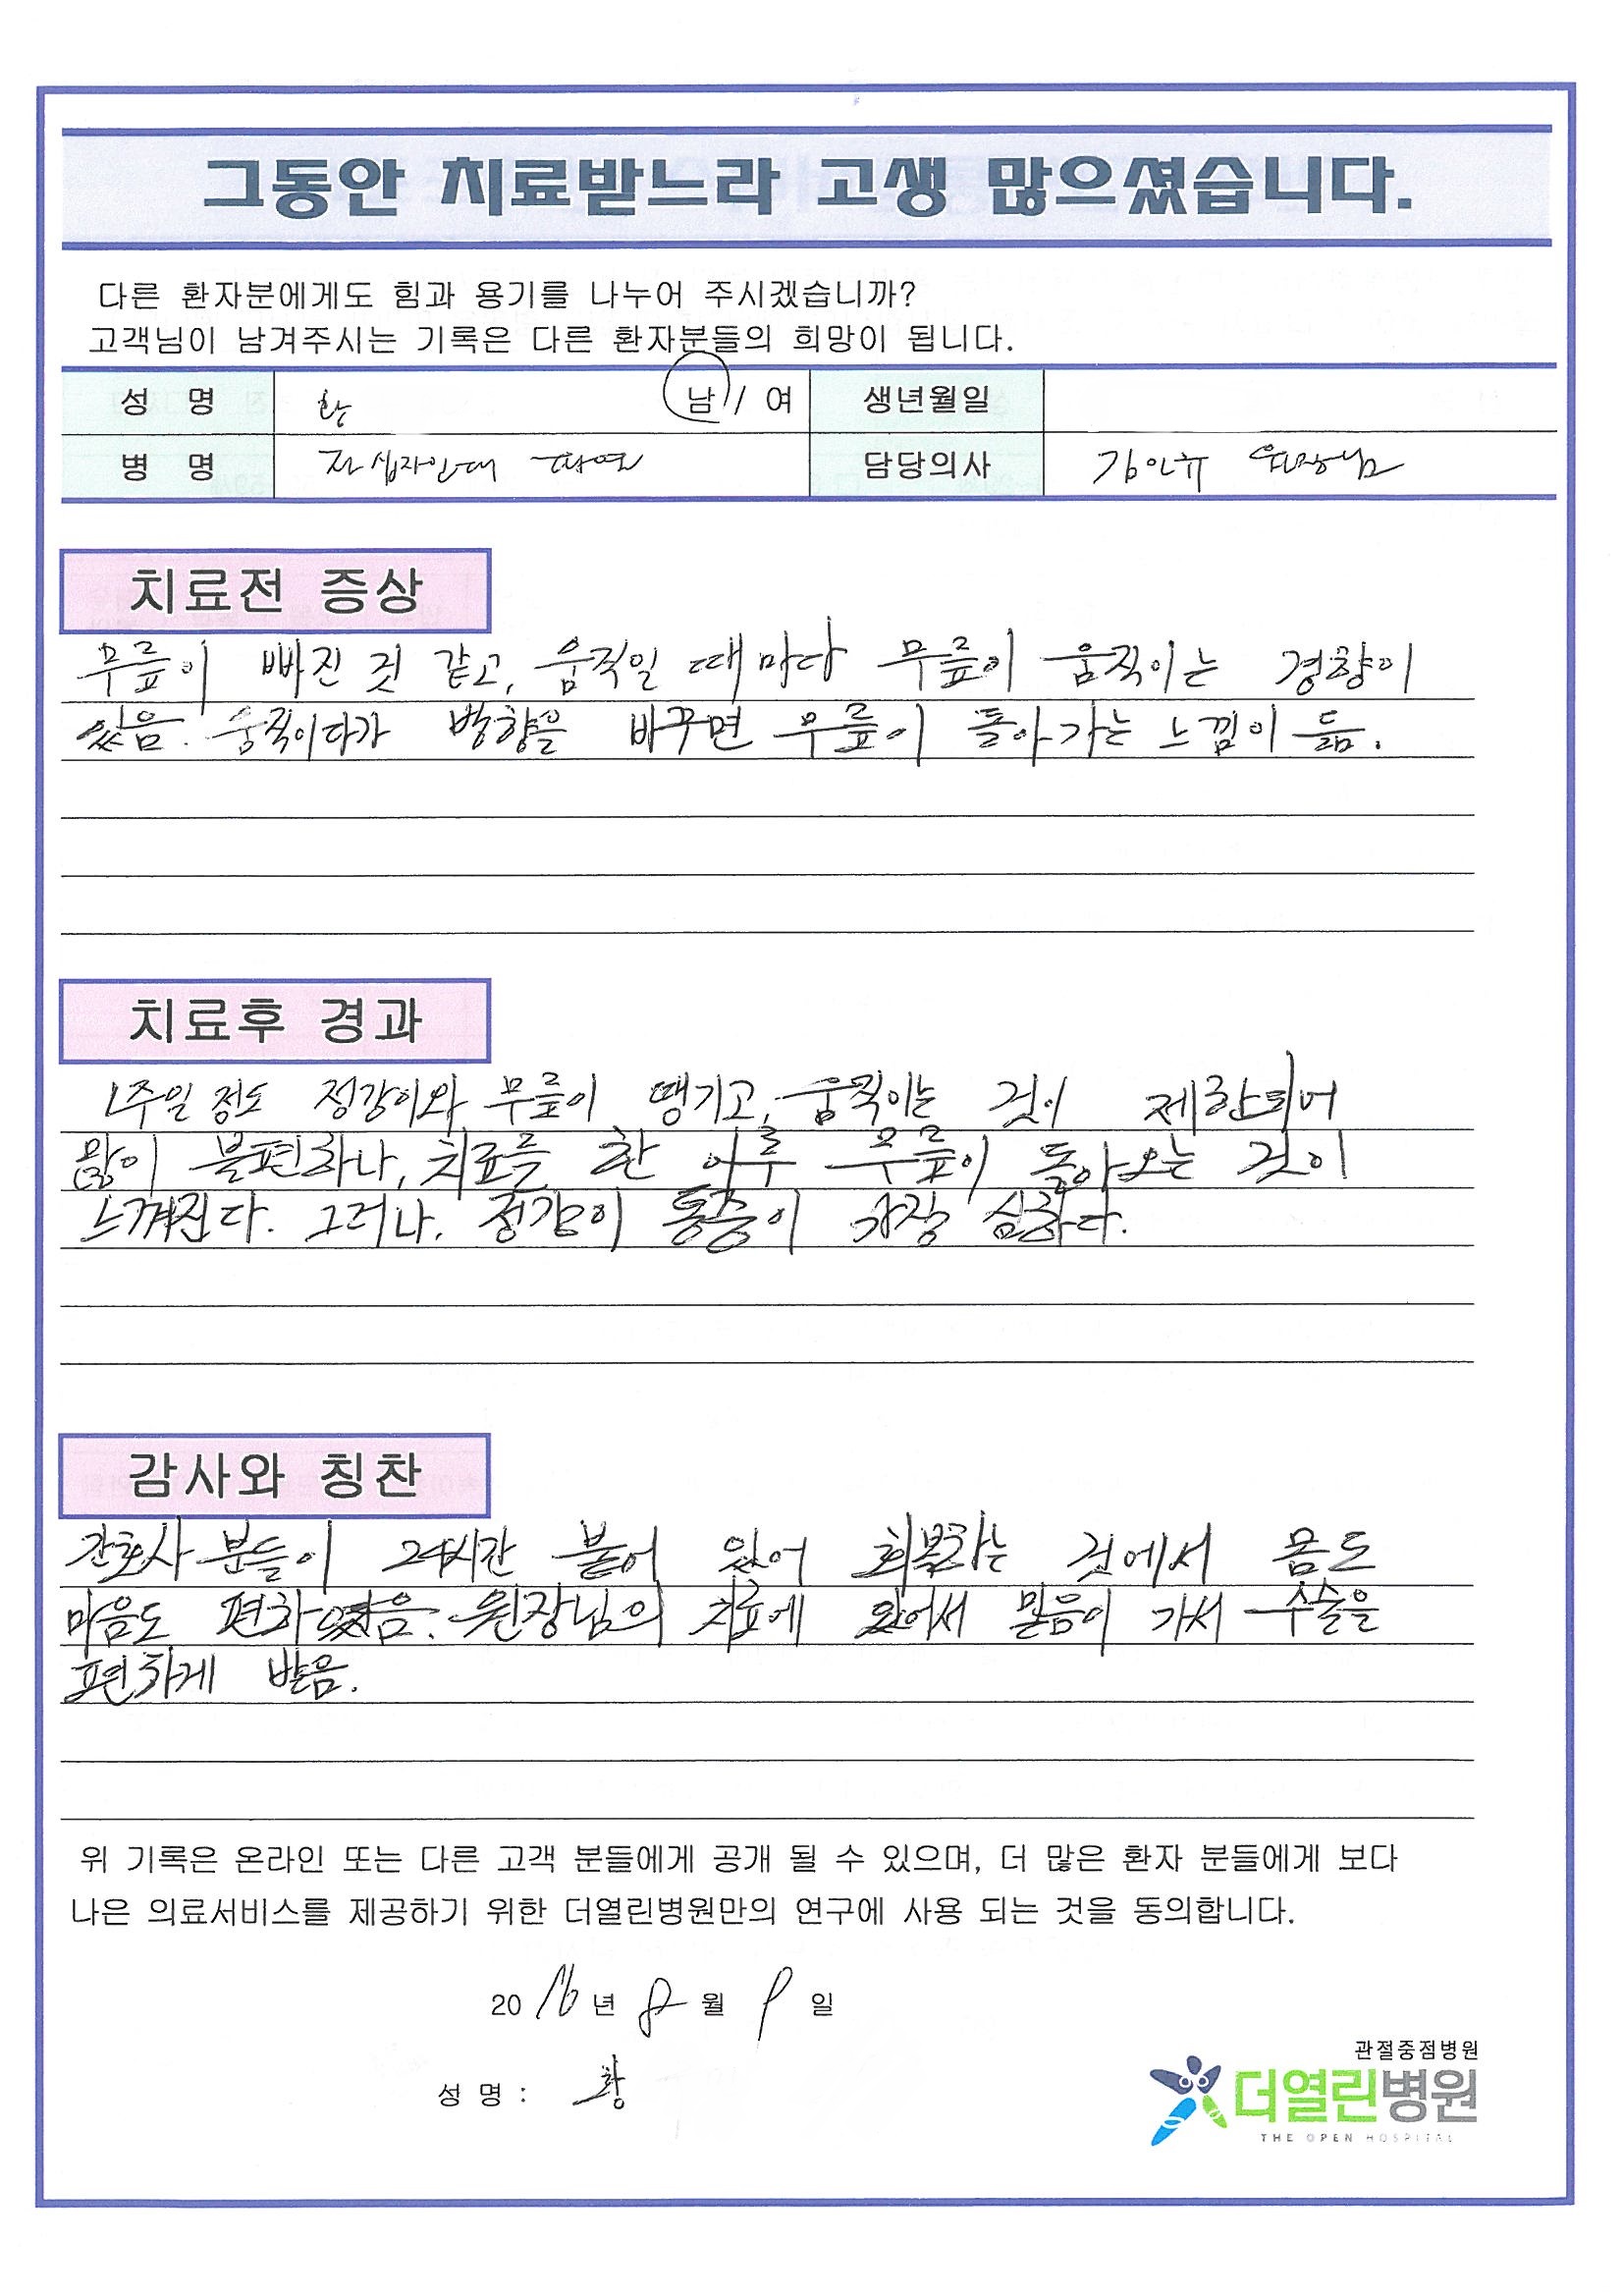 그동안 치료받느라 고생 많으셨습니다.
다른 환자분에게도 힘과 용기를 나누어 주시겠습니까?
고객님이 남겨주시는 기록은 다른 환자분들의 희망이 됩니다.
성 명 황 남 / 여 생년월일
병 명 십자인대 파열 담당의사 원장님
치료전 증상
무릎이 빠진 것 같고, 움직일 때마다 무릎이 움직이는 경향이
있음. 움직이다가 방향을 바꾸면 무릎이 돌아가는 느낌이 듦.
치료후 경과
1주일 정도 정강이와 무릎이 땡기고, 움직이는 것이 제한되어
많이 불편하나, 치료를 한 이후 무릎이 돌아오는 것이
느껴진다. 그러나, 정강이 통증이 가장 심하다.
감사와 칭찬
간호사 분들이 24시간 붙어 있어 회복하는 것에서 몸도
마음도 편하였음. 원장님의 치료에 있어서 믿음이 가서 수술을
편하게 받음.
위 기록은 온라인 또는 다른 고객 분들에게 공개 될 수 있으며, 더 많은 환자 분들에게 보다
나은 의료서비스를 제공하기 위한 더열린병원만의 연구에 사용 되는 것을 동의합니다.
20 16 년 8 월 9 일
성 명 : 황
관절중점병원
더열린병원
THE OPEN HOSPITAL